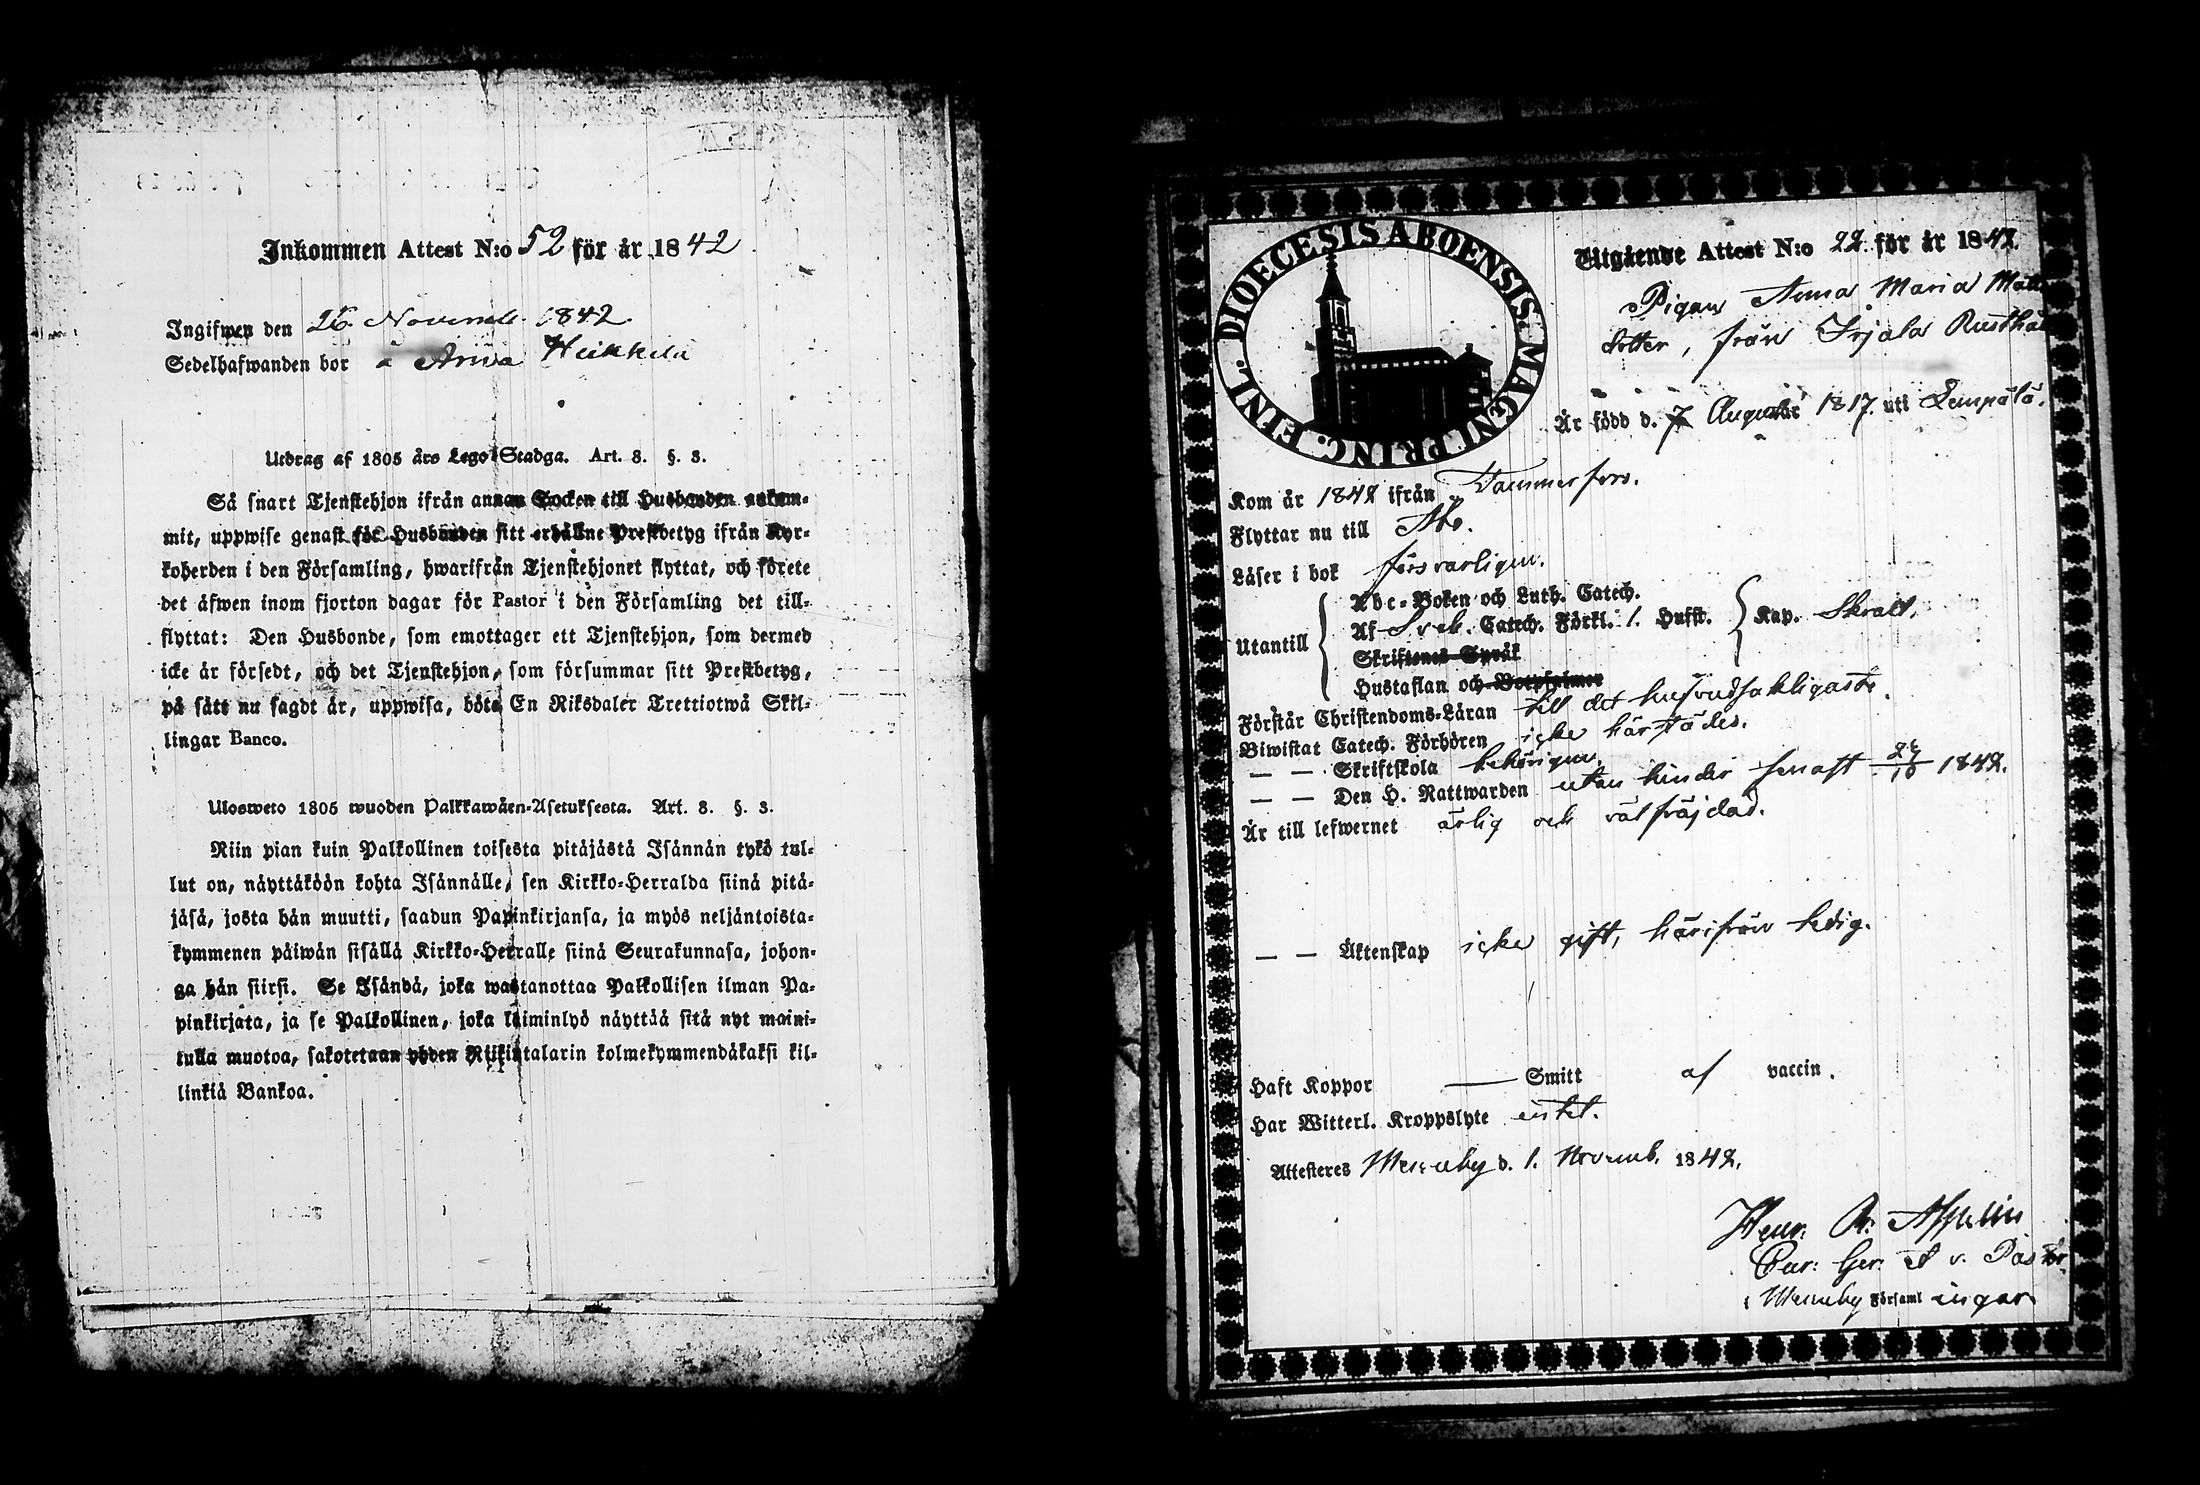 Inkommen Attest N:o 52 för år 1842
Ingifwen den 26 Novemb. 1842.
Sedelhafwanden bor å Heikkilä
Utdrag af 1805 års Lego-Stadga. Art. 8. §. 3.
Så snart Tjenstehjon ifrån annan Socken till Husbonden ankom-
mit, uppwise genast för Husbonden sitt erhållne Prestbetyg ifrån Kyr-
koherden i den Församling, hwarifrån Tjenstehjonet flyttat, och förete
det äfwen inom fjorton dagar för Pastor i den Församling det till-
flyttat: Den Husbonde, som emottager ett Tjenstehjon, som dermed
icke är försedt, och det Tjenstehjon, som försummar sitt Prestbetyg,
på sätt nu sagdt är, uppwisa, böte En Riksdaler Trettiotwå Skil-
lingar Banco.
Ulosweto 1805 wuoden Palkkawäen-Asetuksesta. Art. 8. §. 3.
Niin pian kuin Palkollinen toisesta pitäjästä Isännän tykö tul-
lut on, näyttäköön kohta Isännälle, sen Kirkko-Herralda siinä pitä-
jäsä, josta hän muutti, saadun Papinkirjansa, ja myös neljäntoista-
kymmenen päiwän sisällä Kirkko-Herralle siinä Seurakunnasa, johon-
ga hän siirsi. Se Isändä, joka wastanottaa Palkollisen ilman Pa-
pinkirjata, ja se Palkollinen, joka laiminlyö näyttää sitä nyt maini-
tulla muotoa, sakotetaan yhden Riikintalarin kolmekymmendäkaksi kil-
linkiä Bankoa.
DIOECESIS ABOENSIS. MAGNI PRINC. FINL.
Utgående Attest N:o 22 för år 1842.
Pigan Anna Maria Matts
dotter, från Irjala Rusthåll
Är född d. 7 Augusti 1817. uti Lempälä.
Kom år 1842 ifrån Tammerfors.
Flyttar nu till Åbo.
Läser i bok försvarligen.
Utantill
Abc-Boken och Luth. Catech.
Af Sveb. Catech. Förkl. 1. Hufst. Kap. Skralt.
Skriftenes Språk
Hustaflan och Botpsalmer
Förstår Christendoms-Läran till det hufvudsakligaste.
Biwistat Catech. Förhören icke härstädes.
— — Skriftskola behörigen.
— — Den H. Nattwarden utan hinder senast 1842.
Är till lefwernet ärlig och välfräjdad.
— — Äktenskap icke gift, härifrån ledig.
Haft Koppor — Smitt af vaccin.
Har Witterl. Kroppslyte intet.
Attesteres Messuby d. 1. Novemb. 1842.
Henr. A. Appelin
v. Pastor
i Messuby Församlingar